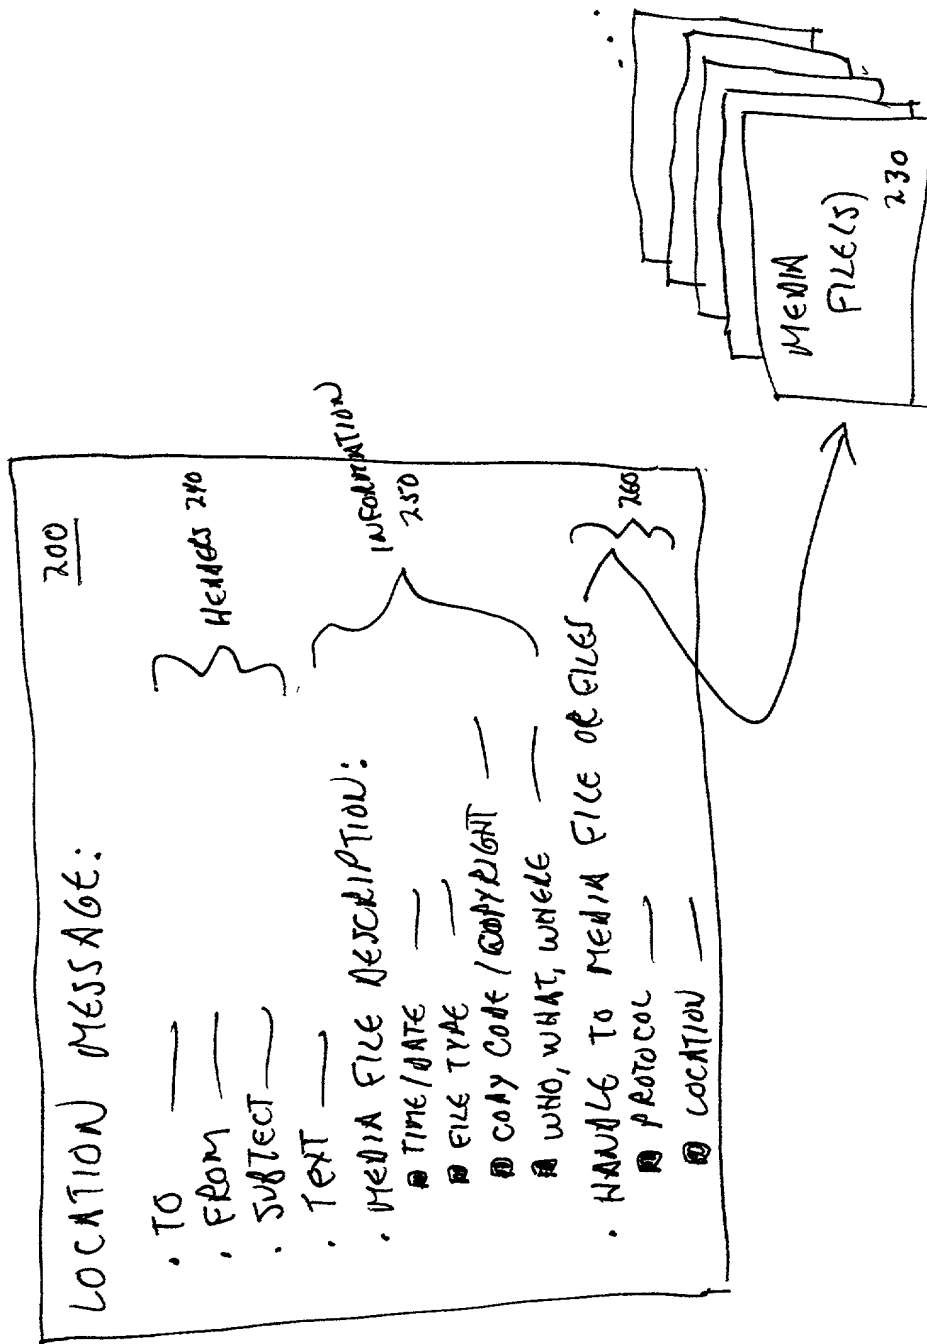 LOCATION MESSAGE:
200
· TO
· FROM
· SUBJECT
HEADERS 240
· TEXT
· MEDIA FILE DESCRIPTION:
TIME/DATE
FILE TYPE
COPY CODE / COPYRIGHT
WHO, WHAT, WHERE
INFORMATION
250
· HANDLE TO MEDIA FILE OR FILES
PROTOCOL
LOCATION
260
MEDIA
FILE(S)
230